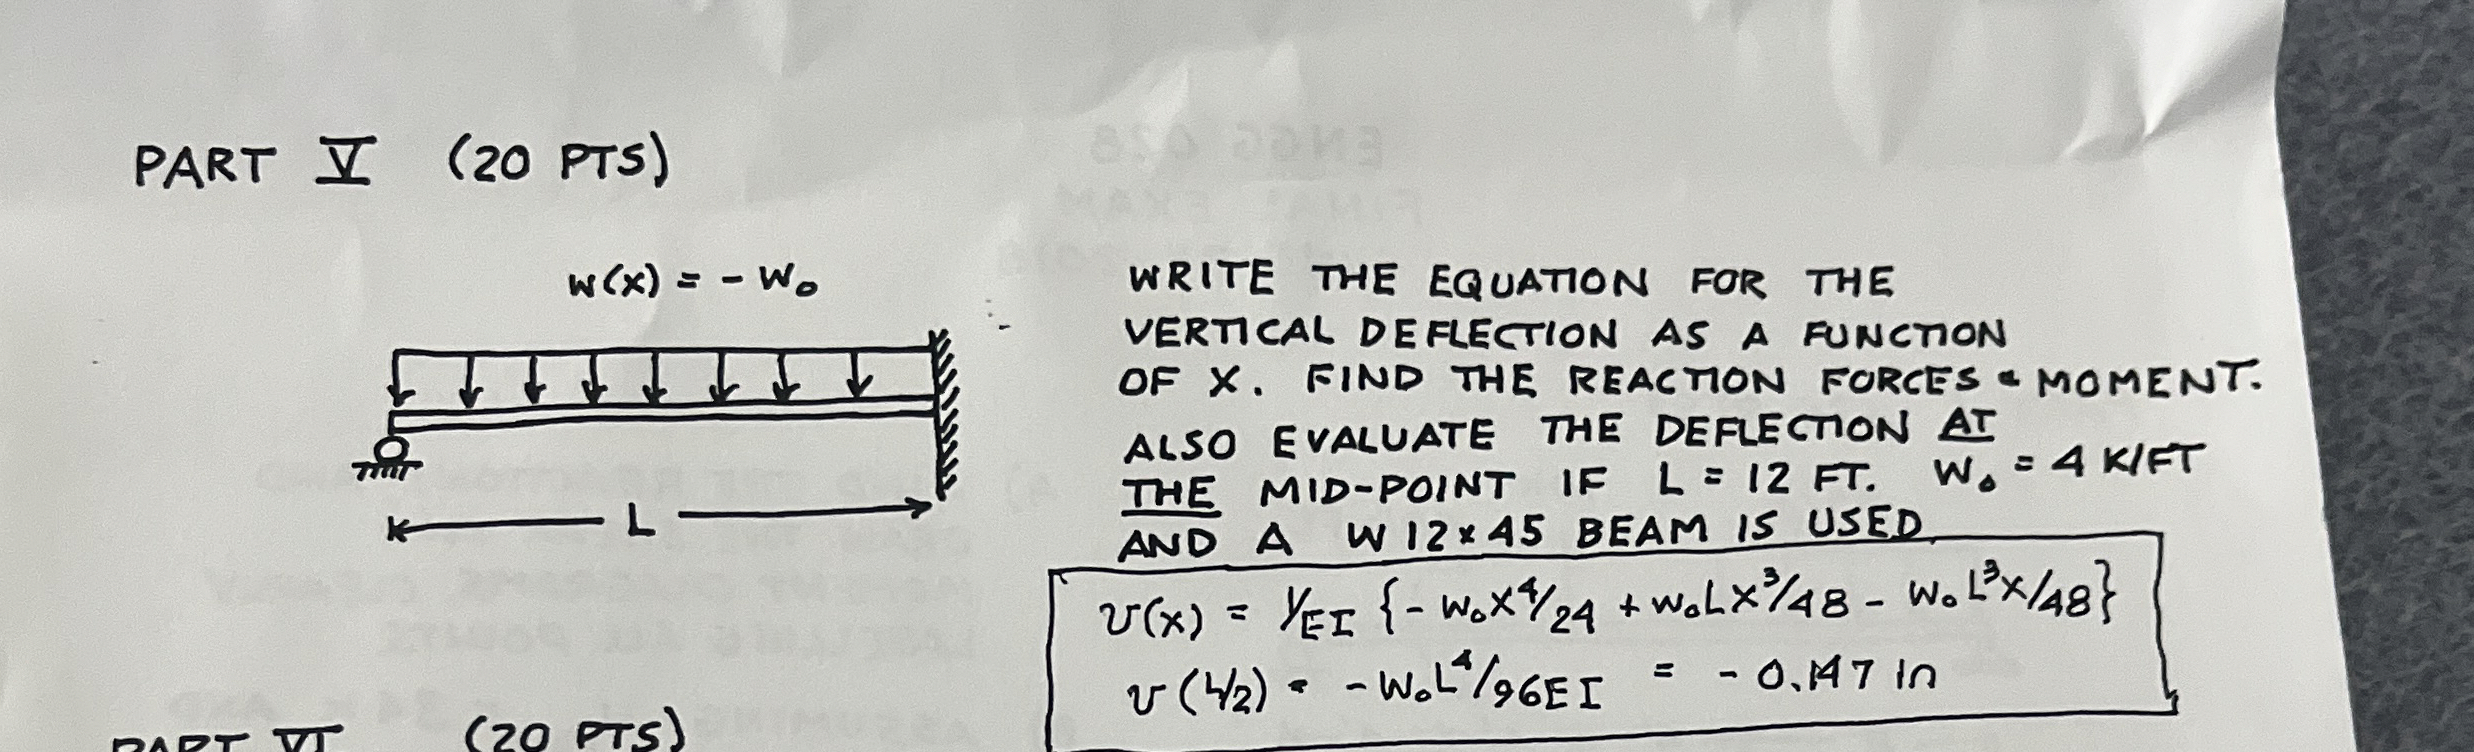 PART V (20 PTS)
w(x) = - W₀
L
WRITE THE EQUATION FOR THE
VERTICAL DEFLECTION AS A FUNCTION
OF X. FIND THE REACTION FORCES & MOMENT.
ALSO EVALUATE THE DEFLECTION AT
THE MID-POINT IF L = 12 FT. W₀ = 4 K/FT
AND A W 12x45 BEAM IS USED
v(x) = 1/EI {- W₀X⁴/24 + W₀LX³/48 - W₀L³X/48}
v(L/2) = -W₀L⁴/96EI = - 0.147 in
PART VI (20 PTS)